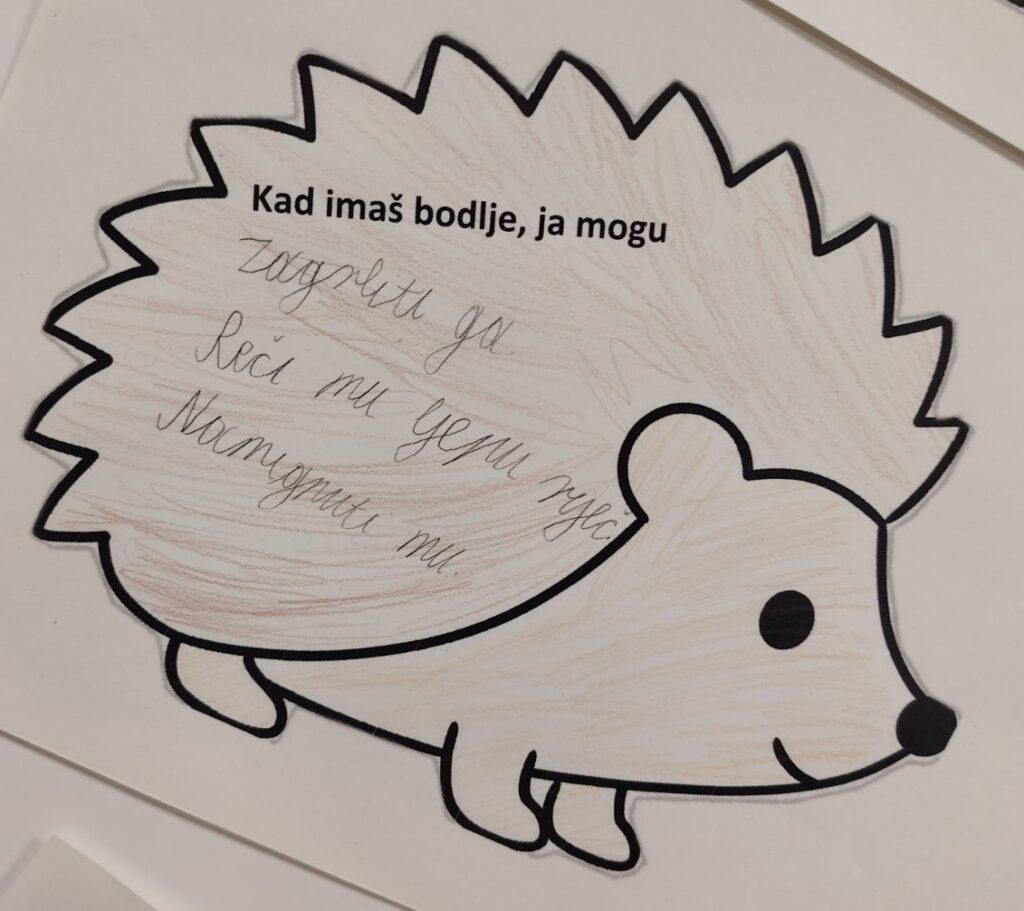 Kad imaš bodlje, ja mogu
Zagrliti ga.
Reči mu ljepu rječ.
Namignuti mu.